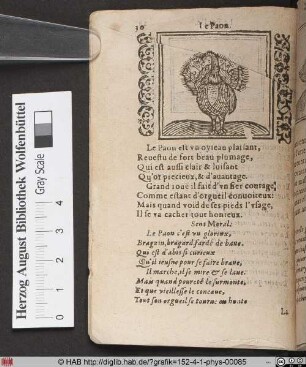 30
Le Paon.
Le Paon est vn oyseau plaisant,
Reuestu de fort beau plumage,
Qui est aussi clair & luisant
Qu'or precieux, & d'auantage.
Grand roue il fait d'vn fier courage,
Comme estant d'orgueil conuoiteux:
Mais quand void de ses pieds l'vsage,
Il se va cacher tout honteux.
Sens Moral.
Le Paon c'est vn glorieux,
Braguin, bragard fardé de baue.
Qui est d'abis curieux
Qu'il ieusne pour se faire braue,
Il marche, il se mire & se laue.
Mais quand pourcté le surmonte,
Et que vieillesse le
Tout son orgueil se tourne en honte
La
Herzog August Bibliothek Wolfenbüttel
Gray Scale
0 1 2 3 4
© HAB http://diglib.hab.de/?grafik=152-4-1-phys-00085